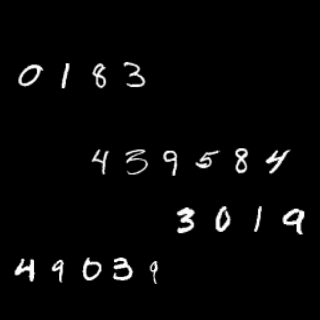 0183
439584
3019
49039